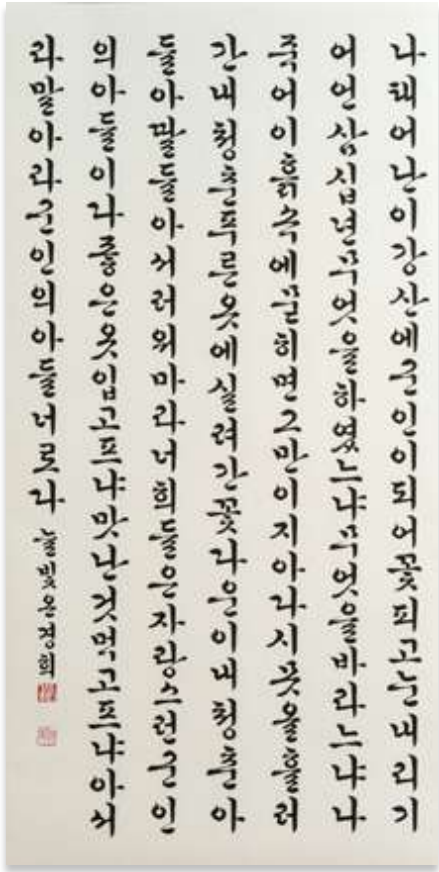 나태어난이강산에군인이되어꽃피고눈내리기
어언삼십년무엇을하였느냐무엇을바라느냐나
죽어이흙속에묻히면그만이지아다시못올흘러
간내청춘푸른옷에실려간꽃다운이내청춘아
들아딸들아서러워마라너희들은자랑스런군인
의아들이다좋은옷입고프냐맛난것먹고프냐아서
라말아라군인의아들너로다 늘빛온경희